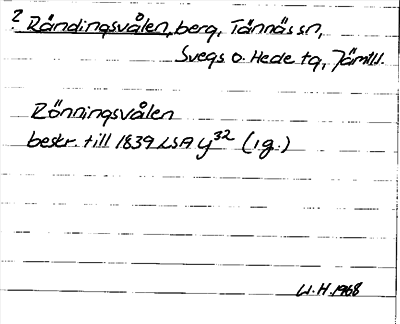 ? Råndingsvålen, berg, Tännäs sn,
Svegs o. Hede tg, Jämtl.
Rönningsvålen
beskr. till 1839 LSA y³² (i g.)
W.H. 1968